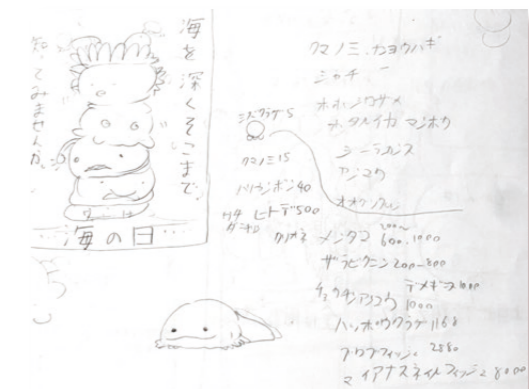 海を深くそこまで
知ってみませんか。
海の日
クマノミ、カヨウハギ
シャチ
ホホジロザメ
ホタルイカ マンボウ
シーラカンス
アンコウ
ミズクラゲ 5
クマノミ 15
ハリセンボン 40
ヒトデ 500
クリオネ
メンダコ 200~ 600.1000
ザラビクニン 200-800
デメギス 1000
チョウチンアンコウ 1000
ハッポウクラゲ 1168
ブロブフィッシュ 2880
マリアナスネイルフィッシュ 8000